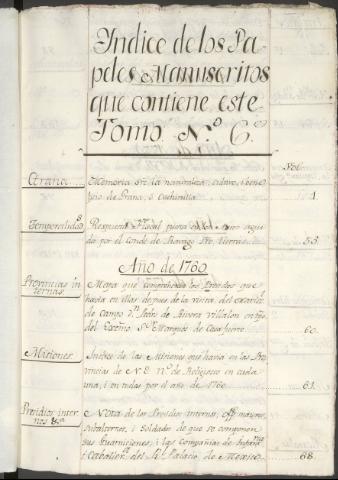 Yndice de los Pa
peles Manuscritos
que contiene este
Tomo N.º 6.º
Fol.
Grana. Memoria sre. la naturaleza, cultivo, i benefi
cio de Grana, ó Cochinilla 1.
Temporalidad.s Respuesta Fiscal puesta en los Autos segui
dos por el Conde de Santiago sre. tierras 55.
Año de 1760
Provincias in
ternas. Mapa que comprehende los Presidios que
havia en ellas despues de la visita del
de Campo Dn. de Rivera Villalon orn.
del Excmo. Sr. Marques de Casafuerte. 60.
Misiones. Indice de las Misiones que havia en las Pro
vincias de N. E. no. de Religiosos en cada
una, i en todas por el año de 1760. 61.
Presidios inter
nos &a. Nota de los Presidios internos, mayores,
subalternos, i Soldados de que se componen
sus Guarniciones, i las Compañias de Infantria.
i Caballeria. del Rl. Palacio de Mexico. 68.